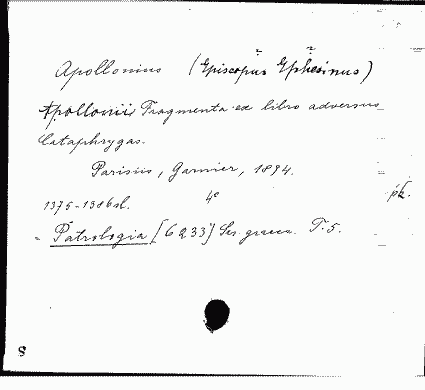 Apollonius (Episcopus Ephesinus)
Apollonii Fragmenta ex libro adversus
Cataphrygas.
Parisiis, Garnier, 1894.
pk.
1375-1386 sl. 4°
Patrologia [6233] Ser. graeca. T. 5.
8